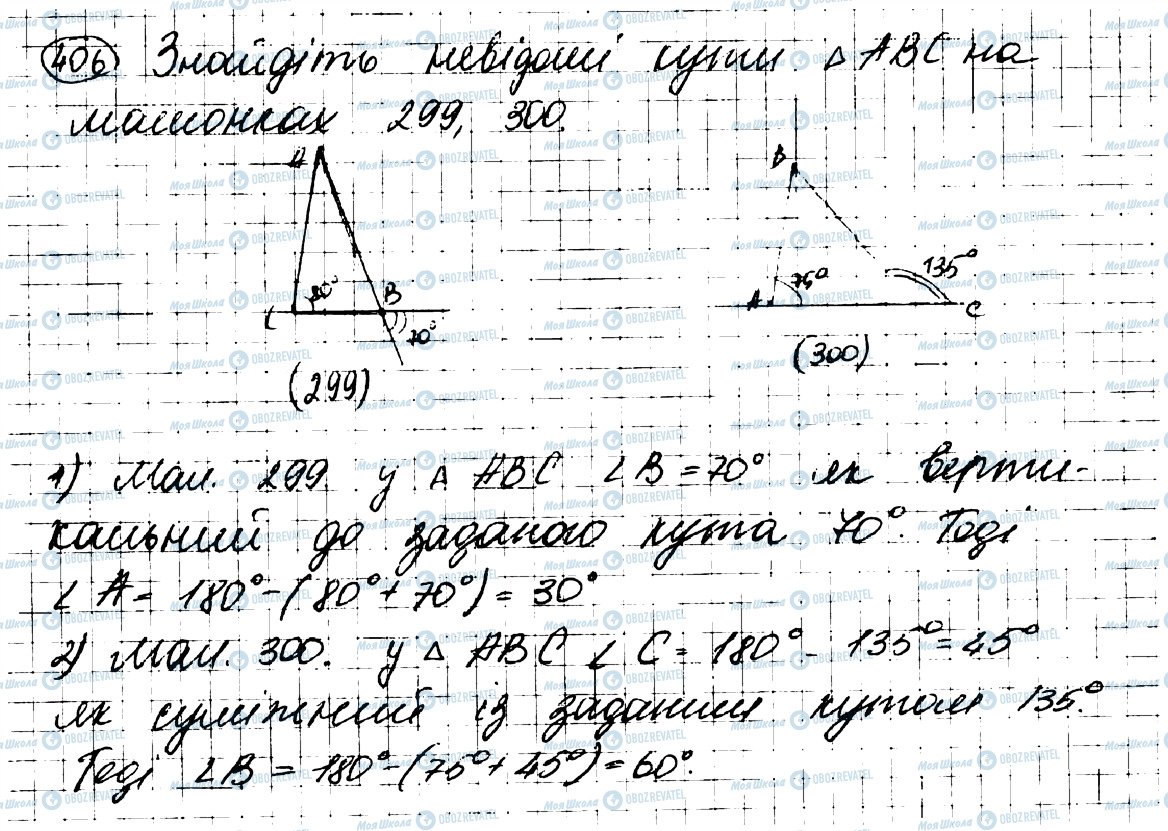 406 Знайдіть невідомі кути △ ABC на
малюнках 299, 300.
A
80°
B
C
70°
(299)
B
75°
135°
A
C
(300)
1) Мал. 299 у △ ABC ∠B = 70° як верти-
кальний до заданого кута 70°. Тоді
∠A = 180° - (80° + 70°) = 30°
2) Мал. 300. у △ ABC ∠C = 180° - 135° = 45°
як суміжний із заданим кутом 135.°
Тоді ∠B = 180° - (75° + 45°) = 60°.
МояШкола OBOZREVATEL